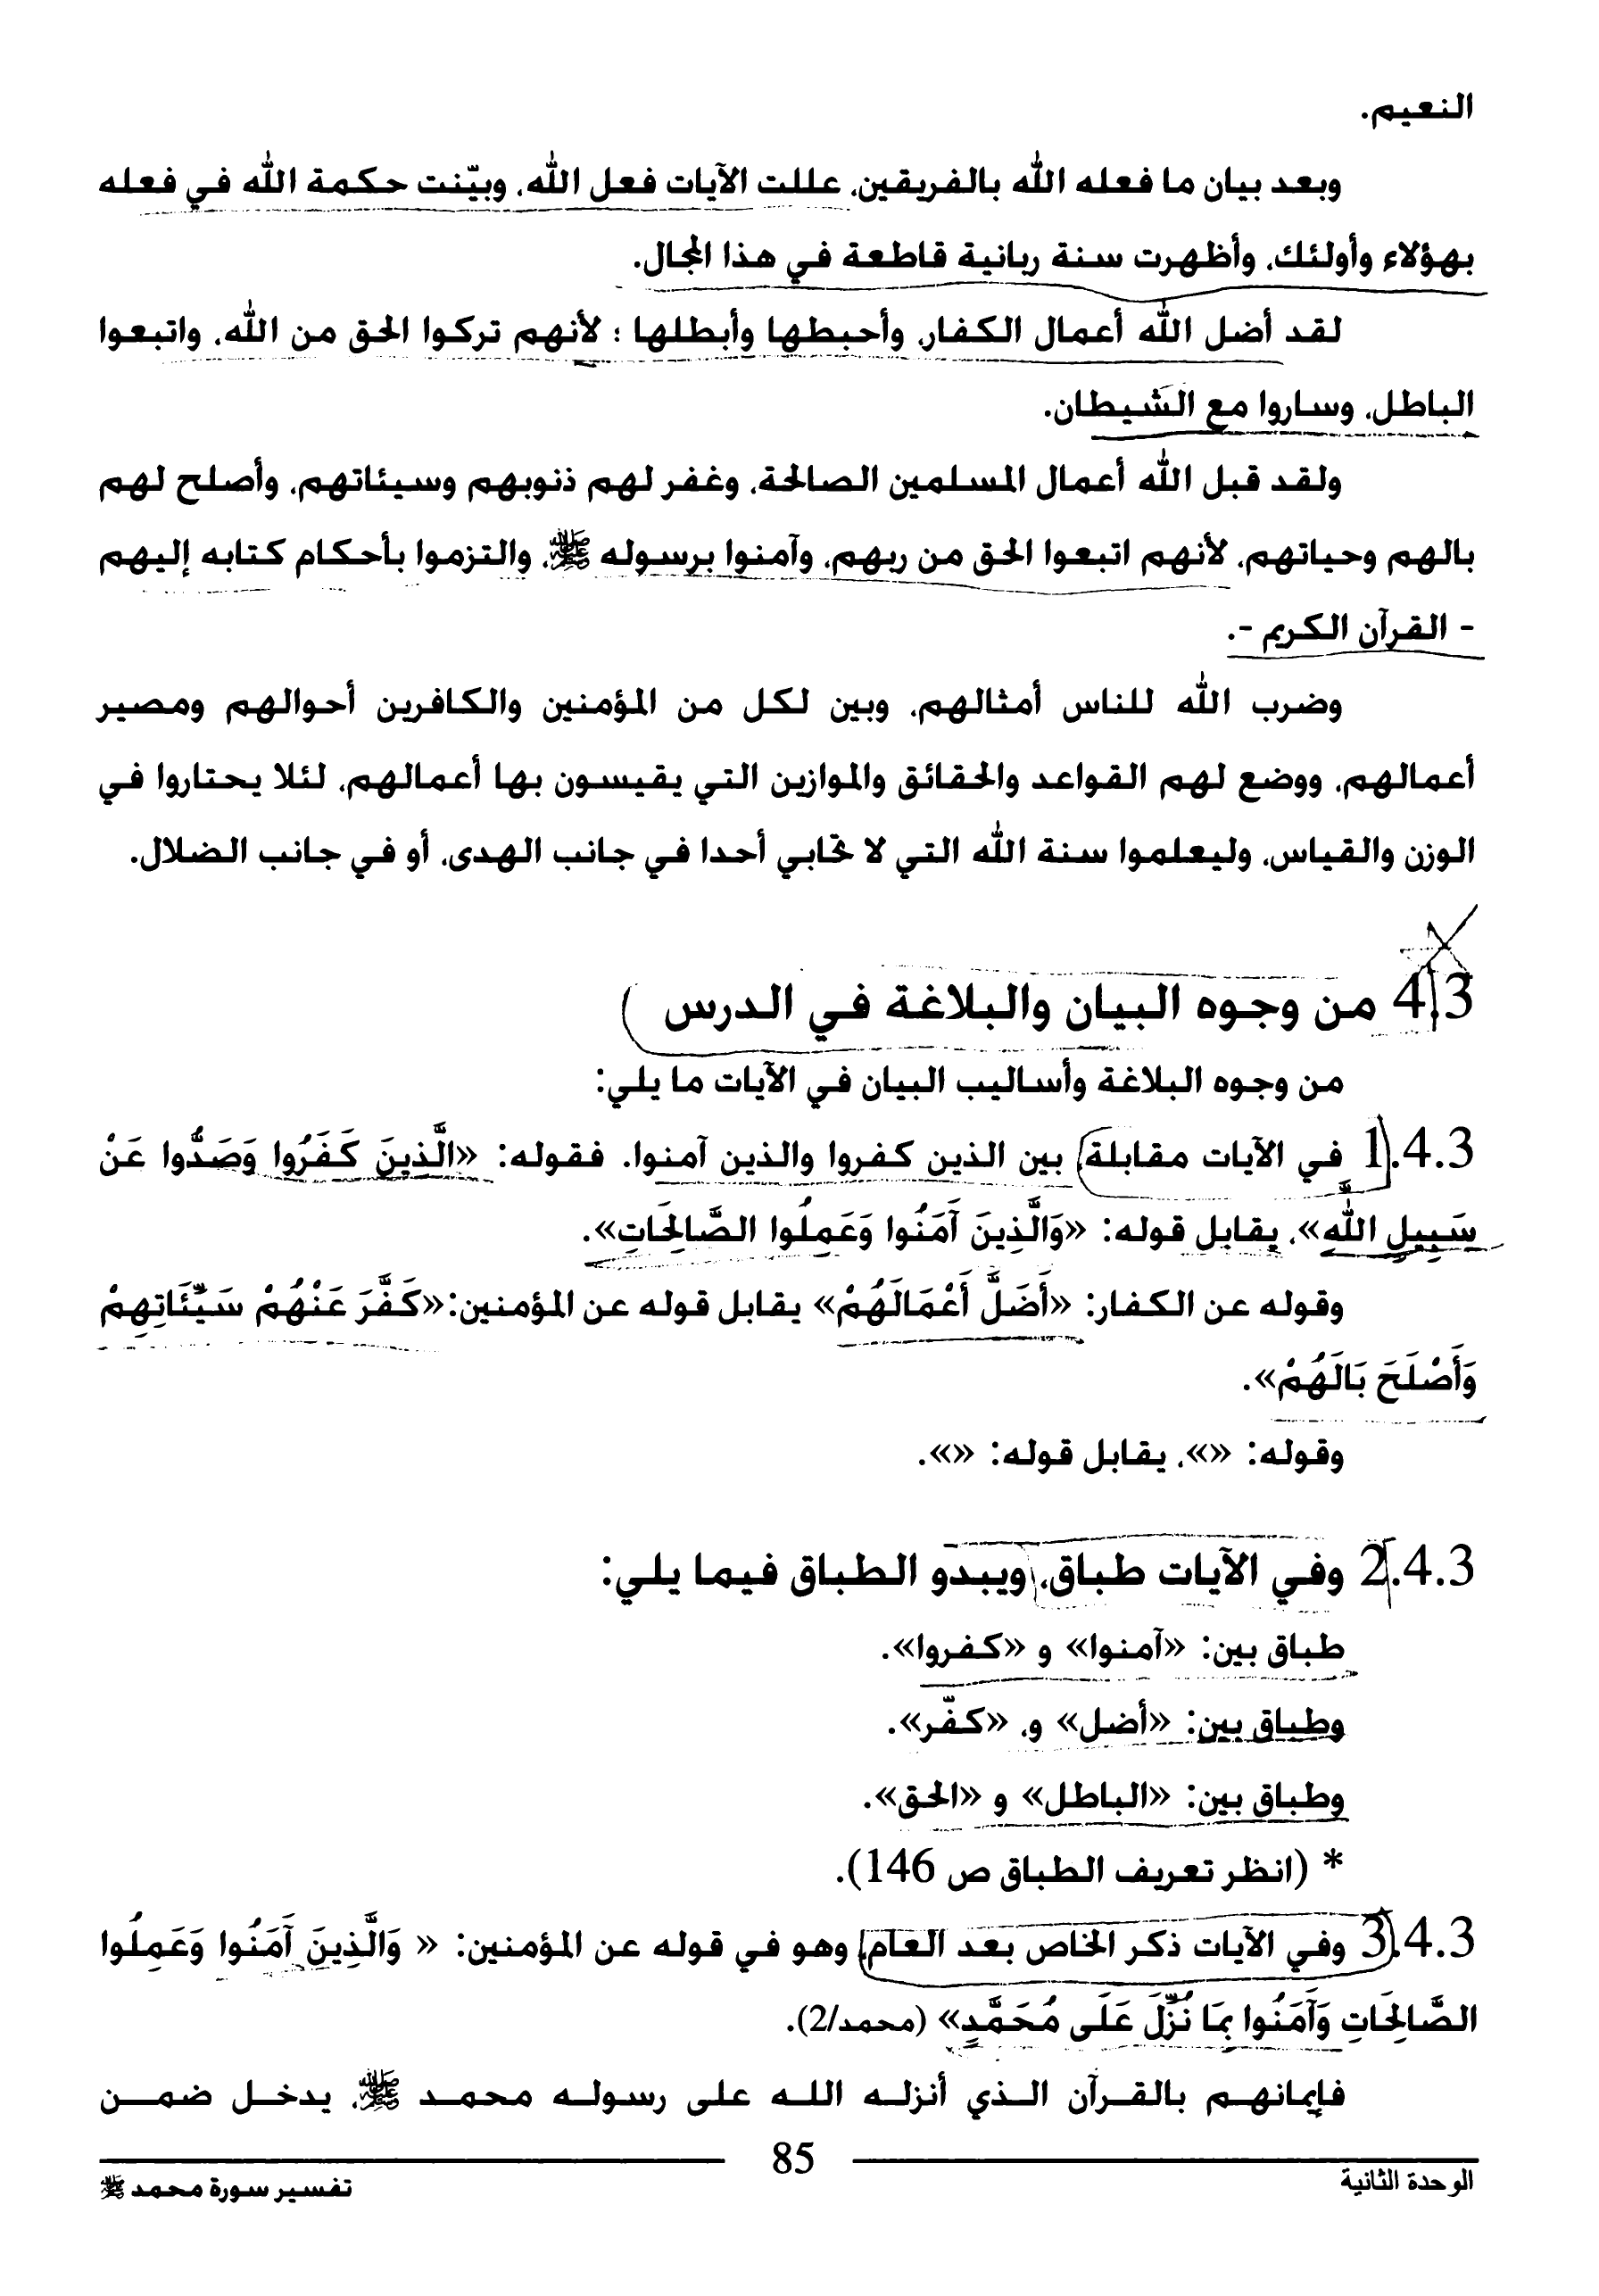 النعيم.
وبعد بيان ما فعله الله بالفريقين، عللت الآيات فعل الله، وبيّنت حكمة الله في فعله
بهؤلاء وأولئك، وأظهرت سنة ربانية قاطعة في هذا المجال.
لقد أضل الله أعمال الكفار، وأحبطها وأبطلها ؛ لأنهم تركوا الحق من الله، واتبعوا
الباطل، وساروا مع الشيطان.
ولقد قبل الله أعمال المسلمين الصالحة، وغفر لهم ذنوبهم وسيئاتهم، وأصلح لهم
بالهم وحياتهم، لأنهم اتبعوا الحق من ربهم، وآمنوا برسوله ﷺ، والتزموا بأحكام كتابه إليهم
- القرآن الكريم -.
وضرب الله للناس أمثالهم، وبين لكل من المؤمنين والكافرين أحوالهم ومصير
أعمالهم، ووضع لهم القواعد والحقائق والموازين التي يقيسون بها أعمالهم، لئلا يحتاروا في
الوزن والقياس، وليعلموا سنة الله التي لا تحابي أحدا في جانب الهدى، أو في جانب الضلال.
4.3 من وجوه البيان والبلاغة في الدرس
من وجوه البلاغة وأساليب البيان في الآيات ما يلي:
1.4.3 في الآيات مقابلة بين الذين كفروا والذين آمنوا. فقوله: «الَّذِينَ كَفَرُوا وَصَدُّوا عَنْ
سَبِيلِ اللَّهِ»، يقابل قوله: «وَالَّذِينَ آمَنُوا وَعَمِلُوا الصَّالِحَاتِ».
وقوله عن الكفار: «أَضَلَّ أَعْمَالَهُمْ» يقابل قوله عن المؤمنين:«كَفَّرَ عَنْهُمْ سَيِّئَاتِهِمْ
وَأَصْلَحَ بَالَهُمْ».
وقوله: «»، يقابل قوله: «».
2.4.3 وفي الآيات طباق، ويبدو الطباق فيما يلي:
طباق بين: «آمنوا» و «كفروا».
وطباق بين: «أضل» و، «كفّر».
وطباق بين: «الباطل» و «الحق».
* (انظر تعريف الطباق ص 146).
3.4.3 وفي الآيات ذكر الخاص بعد العام، وهو في قوله عن المؤمنين: « وَالَّذِينَ آمَنُوا وَعَمِلُوا
الصَّالِحَاتِ وَآمَنُوا بِمَا نُزِّلَ عَلَى مُحَمَّدٍ» (محمد/2).
فإيمانهم بالقرآن الذي أنزله الله على رسوله محمد ﷺ، يدخل ضمن
85
الوحدة الثانية
تفسير سورة محمد ﷺ